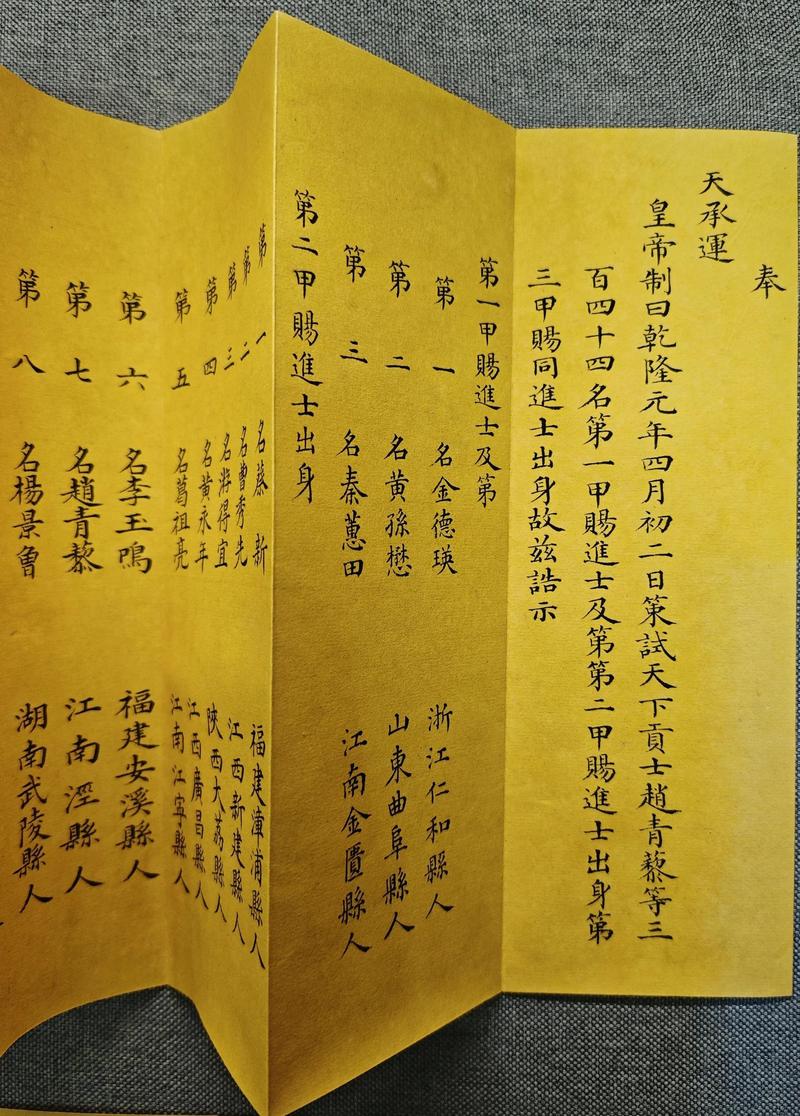 奉
天承運
皇帝制曰乾隆元年四月初二日策試天下貢士趙青藜等三
百四十四名第一甲賜進士及第第二甲賜進士出身第
三甲賜同進士出身故茲誥示
第一甲賜進士及第
第一名金德瑛 浙江仁和縣人
第二名黃孫懋 山東曲阜縣人
第三名秦蕙田 江南金匱縣人
第二甲賜進士出身
第一名蔡新 福建漳浦縣人
第二名曹秀先 江西新建縣人
第三名游得宜 陝西大荔縣人
第四名黃永年 江西廣昌縣人
第五名葛祖亮 江南江寧縣人
第六名李玉鳴 福建安溪縣人
第七名趙青藜 江南涇縣人
第八名楊景曾 湖南武陵縣人